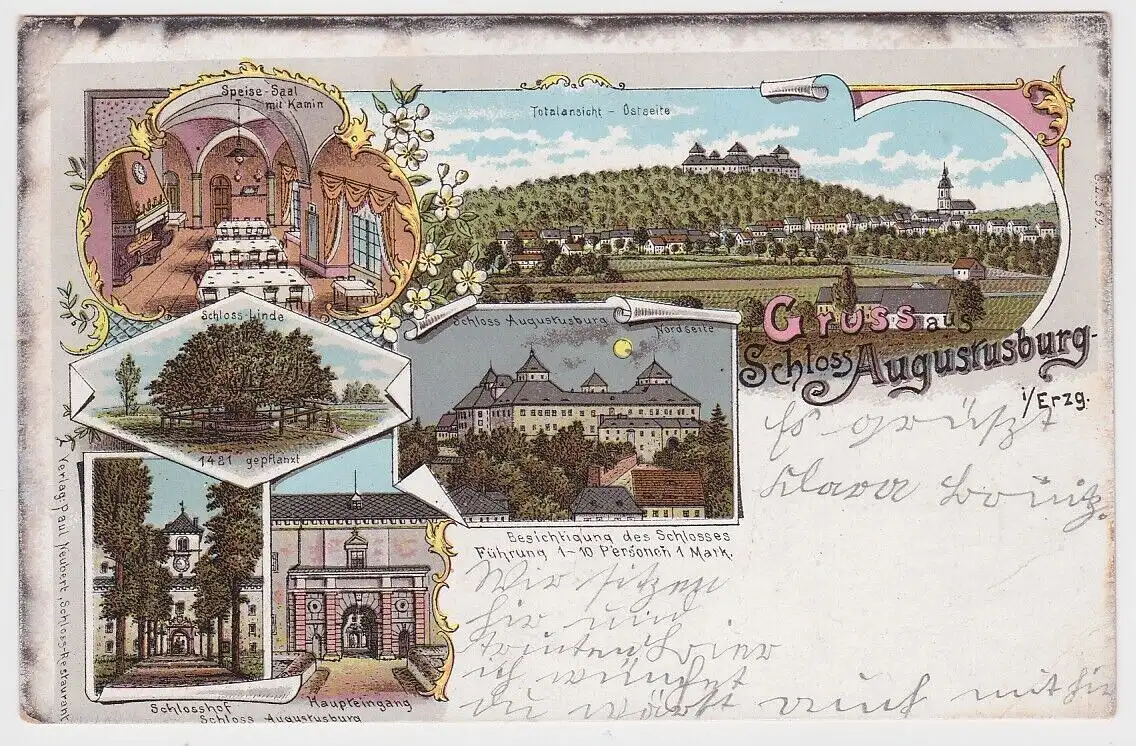 Speise-Saal
mit Kamin
Totalansicht - Ostseite
Gruss aus
Schloss Augustusburg-
i/Erzg.
Schloss-Linde
1421 gepflanzt
Schloss Augustusburg
Nordseite
Besichtigung des Schlosses
Führung 1-10 Personen 1 Mark.
Schlosshof
Haupteingang
Schloss Augustusburg
Verlag: Paul Neubert, Schloss-Restaurant
Es grüszt
Klara
Wir sitzen
hir und
trinken Bier
ich wünchet
du wärst auch mit hir